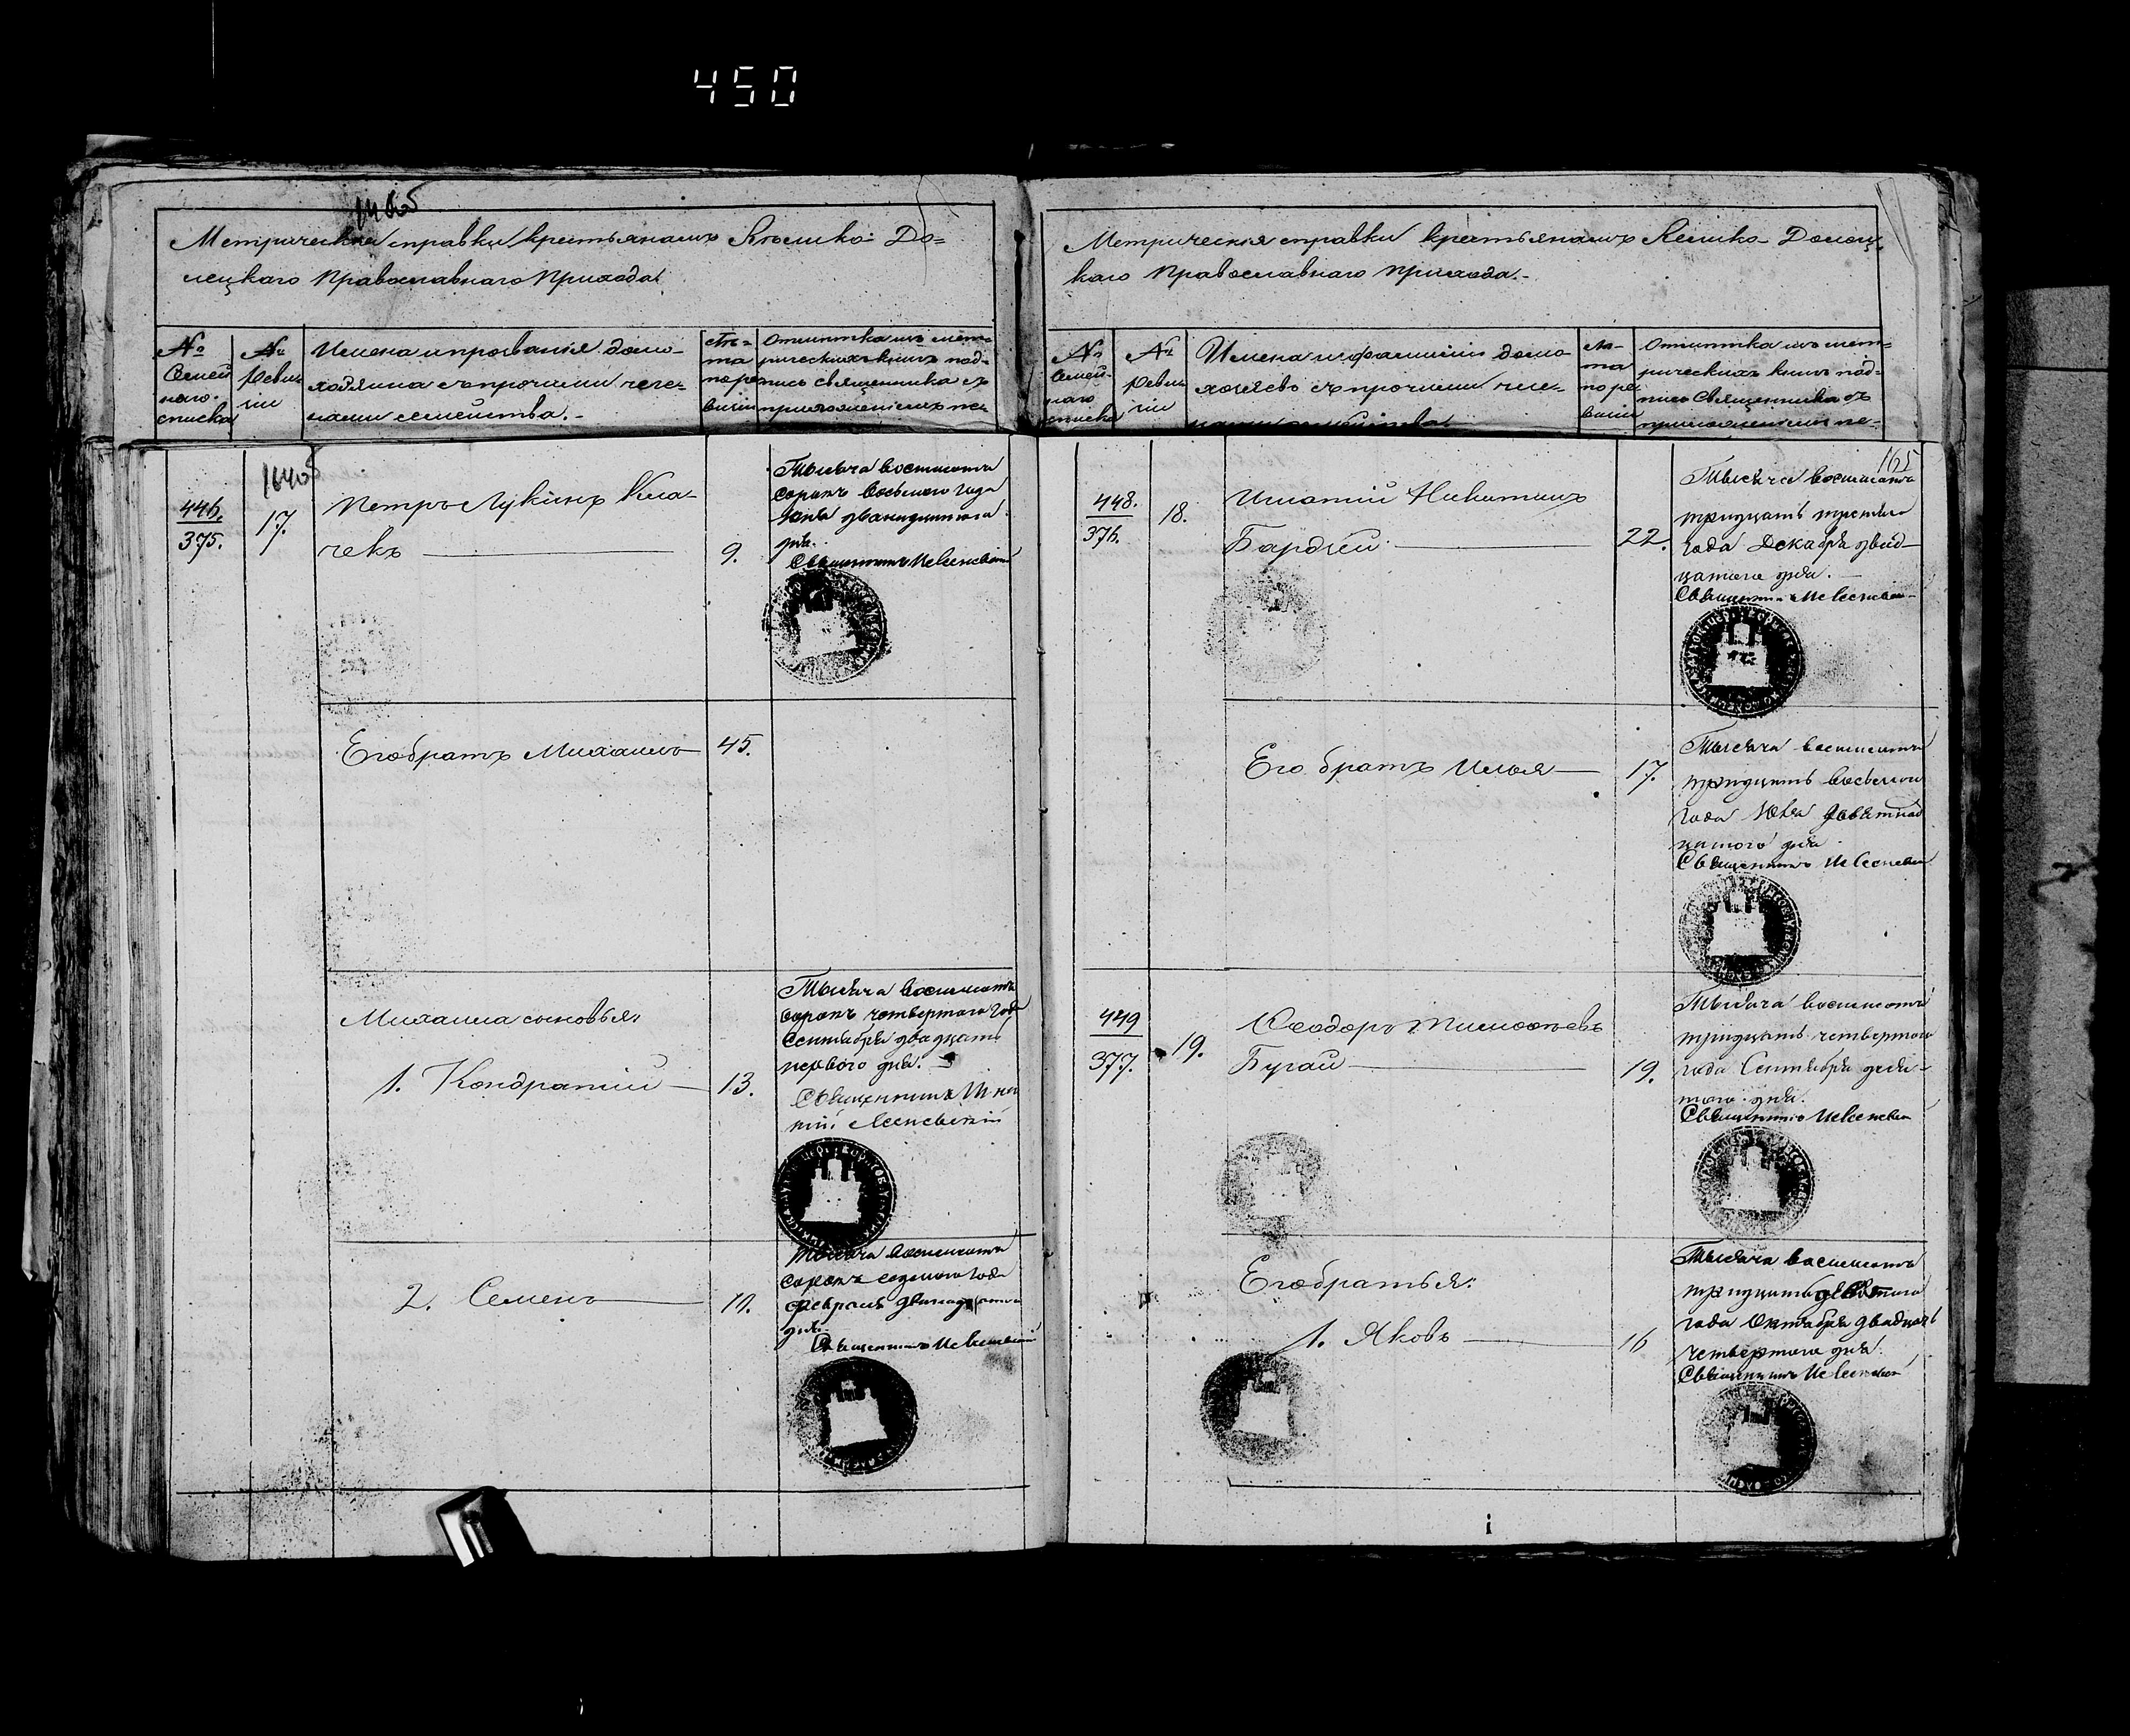 450
164об
Метрическія справки крестьянамъ Велико-До-
лецкаго Православнаго Прихода
№ Семей наго списка
№ Реви зіи
Имена и прозванія домо-
хозяина съ прочими чле-
нами семейства.-
Лѣ-
та
по ре
визіи
Отмѣтка изъ мет-
рическихъ книгъ под-
пись священника съ
приложеніемъ пе-
164об
446.
375.
17.
Петръ Лукинъ Кла-
чекъ
9.
Тысяча восемьсотъ
сорокъ восьмого года
двѣнадцатаго
дня.
Священникъ
Его братъ Михаилъ
45.
Михаила сыновья:
1. Кондратій
13.
Тысяча восемьсотъ
сорокъ четвертаго года
Сентября двадцать
перваго дня.
Священникъ
2. Семенъ
Тысяча восемьсотъ
сорокъ седьмого года
февраля двѣнадцатаго
дня.
Священникъ
Метрическія справки крестьянамъ Велико-Долец-
каго Православнаго прихода.-
№ Семей- наго списка
№ Реви зіи
Имена и фамиліи домо
хозяевъ съ прочими чле-
нами семейства
Лѣ-
та
по ре
визіи
Отмѣтка изъ мет-
рическихъ книгъ под-
пись Священника съ
приложеніемъ пе-
165
448.
376.
18.
Игнатій Никитинъ
22.
Тысяча восемьсотъ
тридцать третьяго
года Декабря двад-
цатаго дня.
Священникъ
Его братъ Илья
17.
Тысяча восемьсотъ
тридцать восьмого
года Іюля девятнад
цатаго дня
Священникъ
449
377.
19.
Ѳеодоръ Тимоѳеевъ
Бугай
19.
Тысяча восемьсотъ
тридцать четвертаго
года Сентября девя-
таго дня.
Священникъ
Его братья:
1. Яковъ
16
Тысяча восемьсотъ
тридцать девятаго
года Октября двадцать
четвертаго дня.
Священникъ